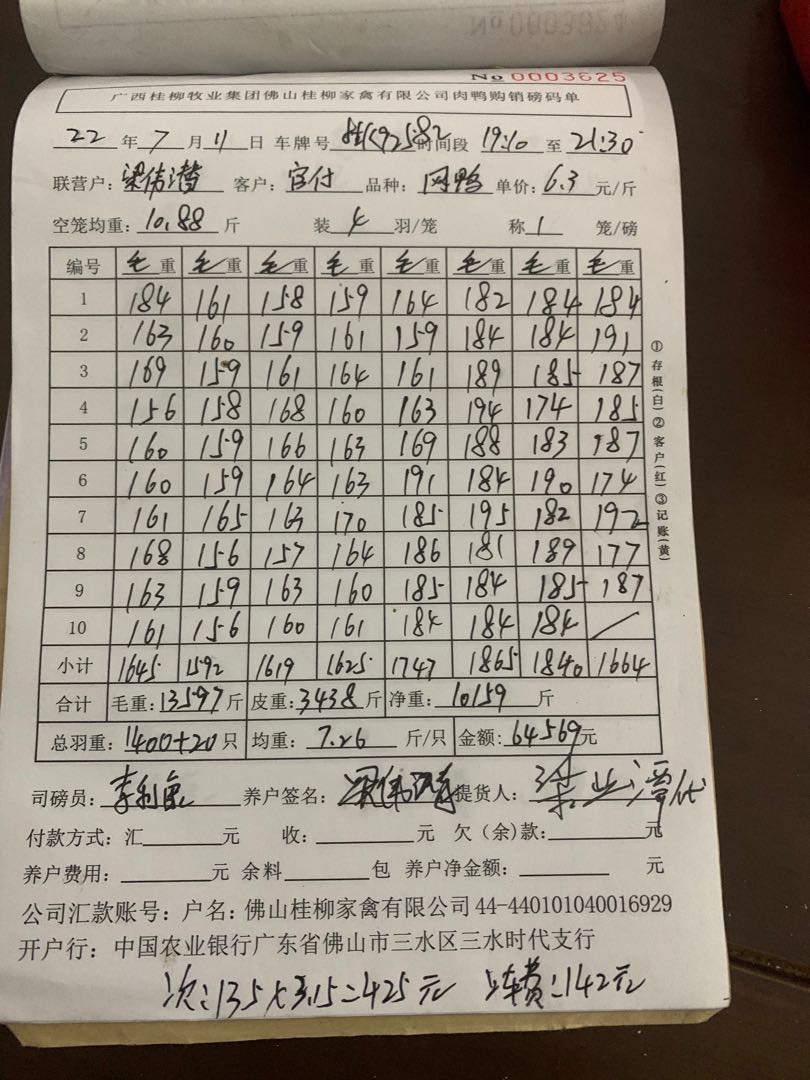 No 0003625
广西桂柳牧业集团佛山桂柳家禽有限公司肉鸭购销磅码单
22 年 7 月 11 日 车牌号 92582 时间段 19:10 至 21:30
联营户: 梁伟潜 客户: 官付 品种: 网鸭 单价: 6.3 元/斤
空笼均重: 10.88 斤 装 4 羽/笼 称 1 笼/磅
编号 毛重 毛重 毛重 毛重 毛重 毛重 毛重 毛重
1 184 161 158 159 164 182 184 184
2 163 160 159 161 159 184 184 191
3 169 159 161 164 161 189 185 187
4 156 158 168 160 163 194 174 185
5 160 159 166 163 169 188 183 187
6 160 159 164 163 191 184 190 174
7 161 165 163 170 185 195 182 192
8 168 156 157 164 186 181 189 177
9 163 159 163 160 185 184 185 187
10 161 156 160 161 184 184 184 /
小计 1645 1592 1619 1625 1747 1865 1840 1664
合计 毛重: 13597 斤 皮重: 3438 斤 净重: 10159 斤
总羽重: 1400+20 只 均重: 7.26 斤/只 金额: 64569 元
司磅员: 养户签名: 提货人:
付款方式: 汇 元 收: 元 欠(余)款: 元
养户费用: 元 余料 包 养户净金额: 元
公司汇款账号: 户名: 佛山桂柳家禽有限公司 44-440101040016929
开户行: 中国农业银行广东省佛山市三水区三水时代支行
次: 135 x 3.15 = 425 元 车费: 142 元
①存根(白)②客户(红)③记账(黄)